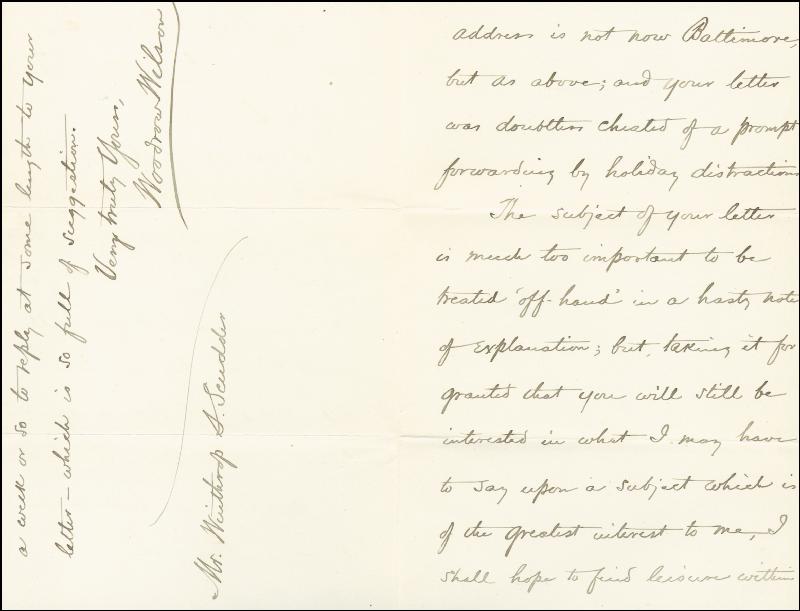 address is not now Baltimore,
but as above; and your letter
was doubtless cheated of a prompt
forwarding by holiday distractions
The subject of your letter
is much too important to be
treated 'off-hand' in a hasty note
of explanation; but, taking it for
granted that you will still be
interested in what I may have
to say upon a subject which is
of the greatest interest to me, I
shall hope to find leisure within
a week or so to reply at some length to your
letter – which is so full of suggestion.
Very truly Yours,
Woodrow Wilson
Mr. Winthrop S. Scudder